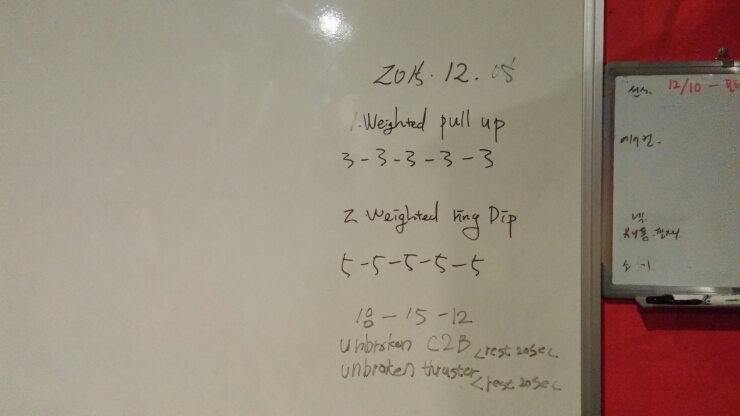 2015.12.08
1. Weighted pull up
3-3-3-3-3
2 Weighted ring Dip
5-5-5-5-5
18-15-12
unbroken C2B <rest 20sec
unbroken thruster <rest 20sec
12/10 -